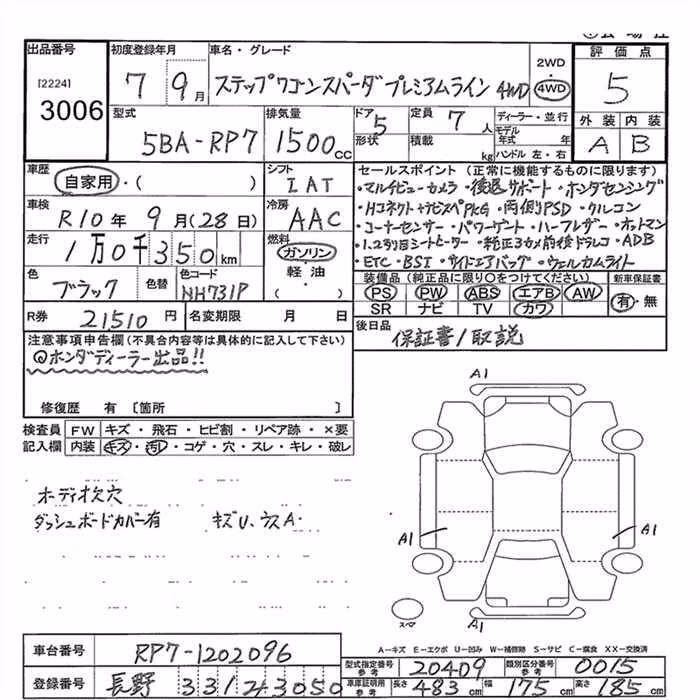 出品番号 初度登録年月 車名・グレード 評価点
[2224]
3006
7 9月 ステップワゴンスパーダプレミアムライン 4WD
2WD
4WD
5
型式 排気量 ドア 定員 ディーラー・並行 外装 内装
5BA-RP7 1500cc 5 7人 A B
形状 積載 kg
モデル年式 年
ハンドル 左・右
車歴 シフト セールスポイント(正常に機能するものに限ります)
自家用・( ) IAT
・マルチビューカメラ・後退サポート・ホンダセンシング
車検 冷房
R10年9月(28日) AAC
・Hコネクト+ナビスペPKG・両側PSD・クルコン
・コーナーセンサー・パワーゲート・ハーフレザー・オットマン
走行 燃料
1万0千350km ガソリン
・1.2列目シートヒーター・純正3カメ前後ドラレコ・ADB
・ETC・BSI・サイドエアバッグ・ウェルカムライト
軽油
・( )
色 色替 色コード
ブラック NH731P
装備品(純正品に限り○をつけてください) 新車保証書
PS PW ABS エアB AW 有・無
SR ナビ TV カワ
R券 21510円 名変期限 月 日
後日品 保証書/取説
注意事項申告欄(不具合内容等は具体的に記入して下さい)
@ホンダディーラー出品!!
修復歴 有 [箇所 ]
検査員 FW キズ・飛石・ヒビ割・リペア跡・×要
記入欄 内装 キズ・汚れ・コゲ・穴・スレ・キレ・破レ
オーディオ欠穴
ダッシュボードカバー有 キズU、ウスA・
A1
A1
A1
A1
スマ
A−キズ E−エクボ U−凹み W−補修跡 S−サビ C−腐食 XX−交換済
車台番号 RP7-1202096
型式指定番号 参考 20409 類別区分番号 参考 0015
登録番号 長野 331 2 43050
車庫証明用 参考 長さ 483cm 幅 175cm 高さ 185cm